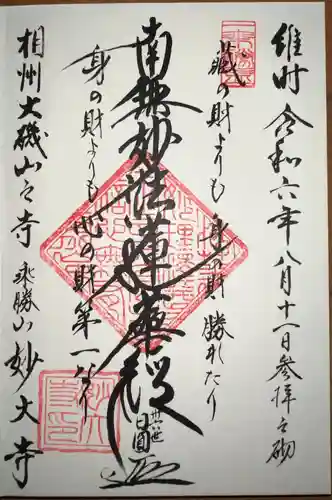 維時 令和六年八月十一日参拝之砌
蔵の財よりも身の財勝れたり
南無妙法蓮華経
身の財よりも心の財第一なり
世
日圓
相州大磯山之寺 乗勝山 妙大寺